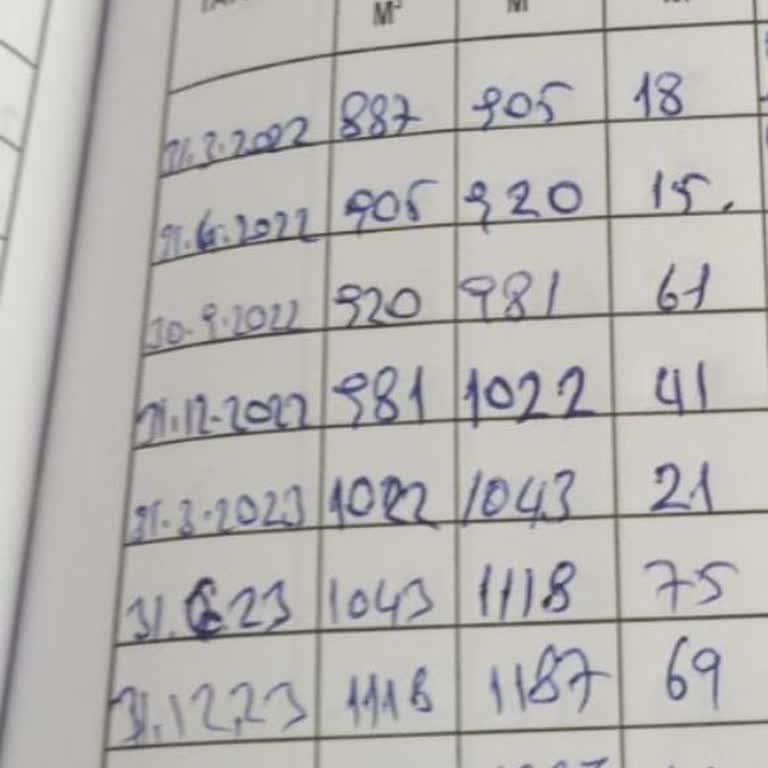 M³ M
31.3.2022 887 905 18
31.6.2022 905 920 15.
30.9.2022 920 981 61
31.12.2022 981 1022 41
31.3.2023 1022 1043 21
31.6.23 1043 1118 75
31.12.23 1118 1187 69